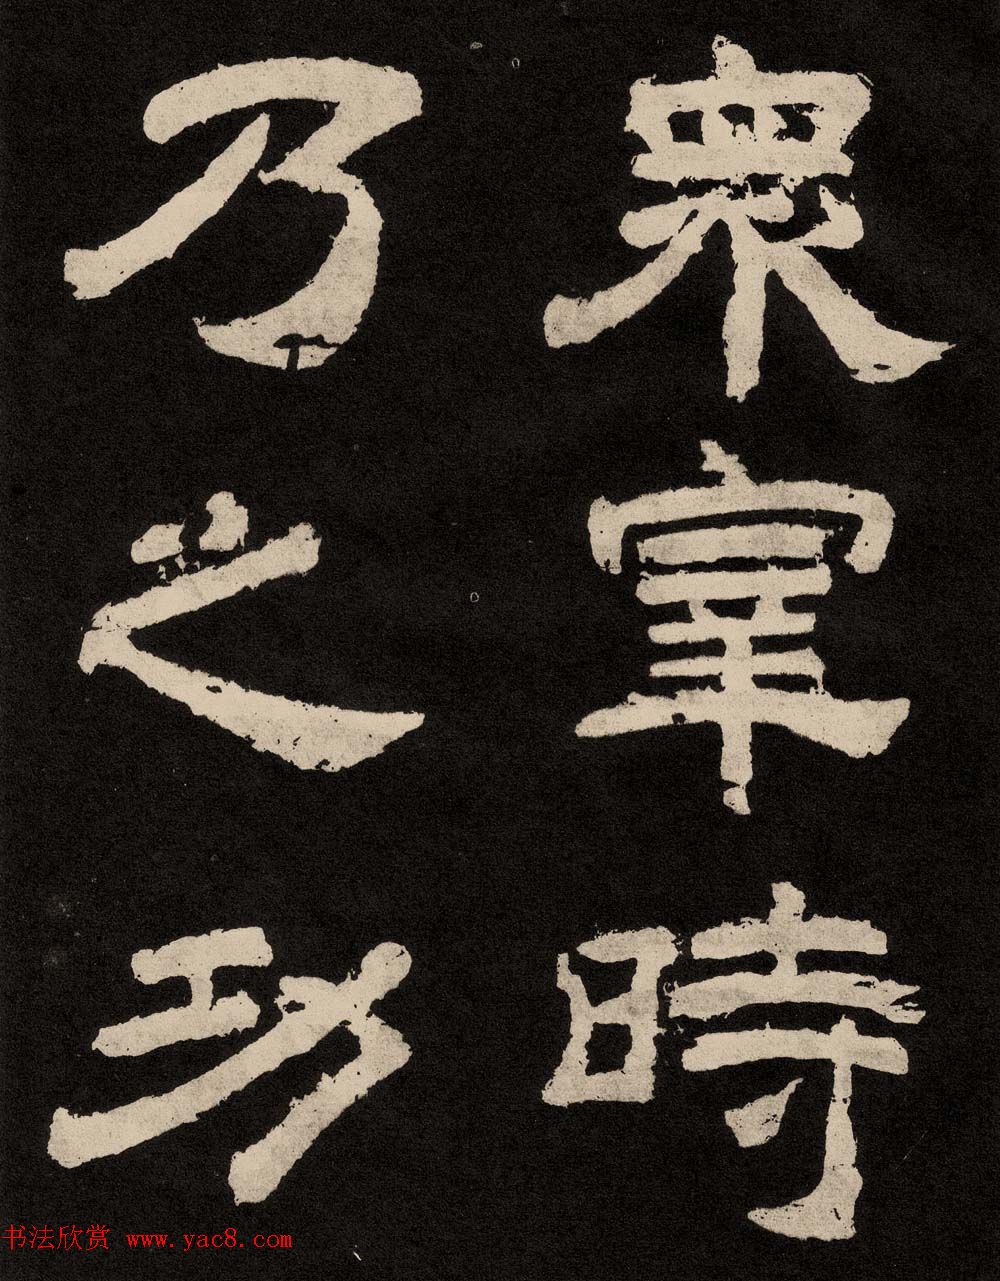 衆宰時
乃之功
书法欣赏 www.yac8.com